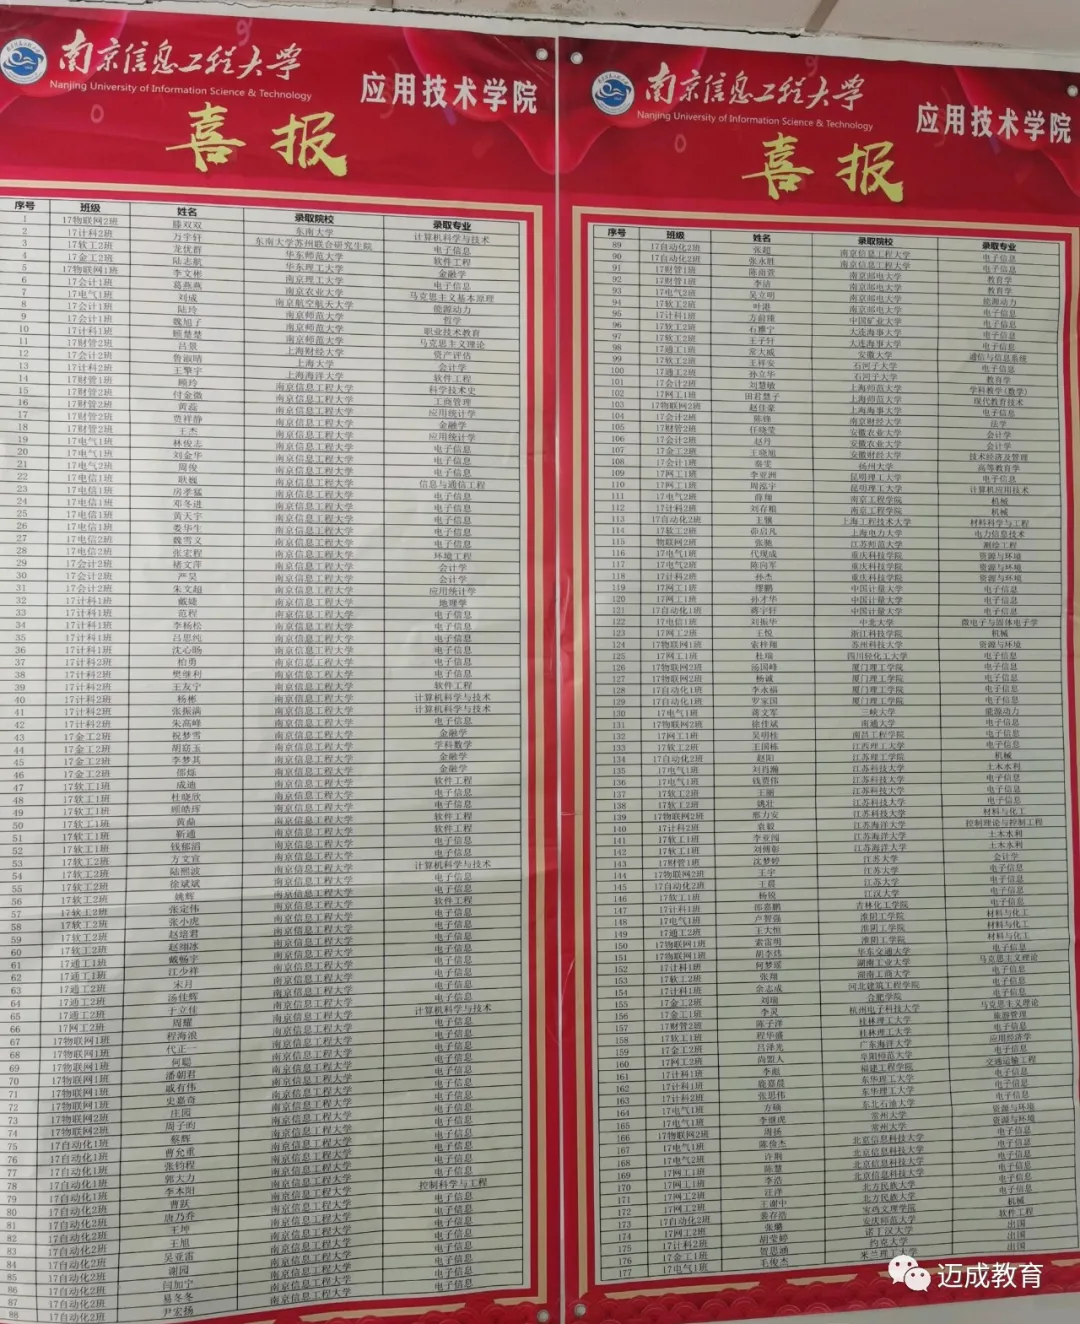 南京信息工程大学
Nanjing University of Information Science & Technology
应用技术学院
喜报
序号 班级 姓名 录取院校 录取专业
1 17物联网2班 滕双双 东南大学 计算机科学与技术
2 17计科2班 万宇轩 东南大学苏州联合研究生院 电子信息
3 17软工2班 龙优群 华东师范大学 软件工程
4 17金工2班 陆志航 华东理工大学 金融学
5 17物联网1班 李文彬 南京理工大学 电子信息
6 17会计1班 葛燕燕 南京农业大学 马克思主义基本原理
7 17电气1班 刘成 南京航空航天大学 能源动力
8 17会计1班 陆玲 南京师范大学 哲学
9 17会计1班 魏旭子 南京师范大学 职业技术教育
10 17计科1班 顾楚楚 南京师范大学 马克思主义理论
11 17财管2班 吕景 上海财经大学 资产评估
12 17会计2班 鲁淑晴 上海大学 会计学
13 17计科2班 王擎宇 上海海洋大学 软件工程
14 17财管1班 顾玲 南京信息工程大学 科学技术史
15 17财管2班 付金微 南京信息工程大学 工商管理
16 17财管2班 黄磊 南京信息工程大学 应用统计学
17 17财管2班 贾祥静 南京信息工程大学 金融学
18 17财管2班 王杰 南京信息工程大学 应用统计学
19 17电气1班 林俊志 南京信息工程大学 电子信息
20 17电气1班 刘金华 南京信息工程大学 电子信息
21 17电气2班 周俊 南京信息工程大学 电子信息
22 17电信1班 耿巍 南京信息工程大学 信息与通信工程
23 17电信1班 房孝猛 南京信息工程大学 电子信息
24 17电信1班 邓冬进 南京信息工程大学 电子信息
25 17电信1班 黄天宇 南京信息工程大学 电子信息
26 17电信1班 娄华生 南京信息工程大学 电子信息
27 17电信2班 魏雪义 南京信息工程大学 电子信息
28 17电信2班 张宏程 南京信息工程大学 环境工程
29 17会计2班 褚文萍 南京信息工程大学 会计学
30 17会计2班 严昊 南京信息工程大学 会计学
31 17会计2班 朱文超 南京信息工程大学 应用统计学
32 17计科1班 戴婕 南京信息工程大学 地理学
33 17计科1班 范程 南京信息工程大学 电子信息
34 17计科1班 李杨松 南京信息工程大学 电子信息
35 17计科1班 吕思纯 南京信息工程大学 电子信息
36 17计科1班 沈心旸 南京信息工程大学 电子信息
37 17计科2班 柏勇 南京信息工程大学 电子信息
38 17计科2班 樊继利 南京信息工程大学 电子信息
39 17计科2班 王友宁 南京信息工程大学 软件工程
40 17计科2班 杨彬 南京信息工程大学 计算机科学与技术
41 17计科2班 张振满 南京信息工程大学 计算机科学与技术
42 17计科2班 朱高峰 南京信息工程大学 电子信息
43 17金工2班 祝梦雪 南京信息工程大学 金融学
44 17金工2班 胡窈玉 南京信息工程大学 学科数学
45 17金工2班 李梦其 南京信息工程大学 金融学
46 17金工2班 邵烁 南京信息工程大学 金融学
47 17软工1班 成迪 南京信息工程大学 软件工程
48 17软工1班 杜晓欣 南京信息工程大学 电子信息
49 17软工1班 顾皓珲 南京信息工程大学 电子信息
50 17软工1班 黄鼎 南京信息工程大学 软件工程
51 17软工1班 靳通 南京信息工程大学 软件工程
52 17软工1班 钱郁滔 南京信息工程大学 电子信息
53 17软工2班 方文宣 南京信息工程大学 电子信息
54 17软工2班 陆熙波 南京信息工程大学 计算机科学与技术
55 17软工2班 徐斌斌 南京信息工程大学 电子信息
56 17软工2班 姚辉 南京信息工程大学 电子信息
57 17软工2班 张定伟 南京信息工程大学 软件工程
58 17软工2班 张小虎 南京信息工程大学 电子信息
59 17软工2班 赵培君 南京信息工程大学 电子信息
60 17软工2班 赵翊冰 南京信息工程大学 电子信息
61 17通工1班 戴畅宇 南京信息工程大学 电子信息
62 17通工1班 江少祥 南京信息工程大学 电子信息
63 17通工2班 宋月 南京信息工程大学 电子信息
64 17通工2班 汤佳辉 南京信息工程大学 电子信息
65 17通工2班 于立佳 南京信息工程大学 计算机科学与技术
66 17网工2班 周耀 南京信息工程大学 电子信息
67 17物联网1班 程海浪 南京信息工程大学 电子信息
68 17物联网1班 代正一 南京信息工程大学 电子信息
69 17物联网1班 何聪 南京信息工程大学 电子信息
70 17物联网1班 潘朝君 南京信息工程大学 电子信息
71 17物联网1班 戚有伟 南京信息工程大学 电子信息
72 17物联网1班 史嘉奇 南京信息工程大学 电子信息
73 17物联网2班 庄园 南京信息工程大学 电子信息
74 17物联网2班 周子昀 南京信息工程大学 电子信息
75 17自动化1班 蔡辉 南京信息工程大学 电子信息
76 17自动化1班 曹允重 南京信息工程大学 电子信息
77 17自动化1班 张钧程 南京信息工程大学 电子信息
78 17自动化1班 郭大力 南京信息工程大学 电子信息
79 17自动化1班 李本阳 南京信息工程大学 控制科学与工程
80 17自动化2班 曹跃 南京信息工程大学 电子信息
81 17自动化2班 唐乃乔 南京信息工程大学 电子信息
82 17自动化2班 王坤 南京信息工程大学 电子信息
83 17自动化2班 王旭 南京信息工程大学 电子信息
84 17自动化2班 吴亚雷 南京信息工程大学 电子信息
85 17自动化2班 谢园 南京信息工程大学 电子信息
86 17自动化2班 闫加宁 南京信息工程大学 电子信息
87 17自动化2班 易冬冬 南京信息工程大学 电子信息
88 17自动化2班 尹宏扬 南京信息工程大学 电子信息
南京信息工程大学
Nanjing University of Information Science & Technology
应用技术学院
喜报
序号 班级 姓名 录取院校 录取专业
89 17自动化2班 张超 南京信息工程大学 电子信息
90 17自动化2班 张永胜 南京信息工程大学 电子信息
91 17财管1班 陈雨萱 南京邮电大学 教育学
92 17财管1班 李洁 南京邮电大学 教育学
93 17电气2班 吴立明 南京邮电大学 能源动力
94 17软工2班 叶港 南京邮电大学 电子信息
95 17计科1班 方前臻 中国矿业大学 电子信息
96 17软工2班 石雅宁 大连海事大学 电子信息
97 17软工2班 王子轩 大连海事大学 电子信息
98 17通工1班 童大威 安徽大学 通信与信息系统
99 17软工2班 王祥安 石河子大学 电子信息
100 17通工2班 孙立华 石河子大学 教育学
101 17会计2班 刘慧敏 上海师范大学 学科教学(数学)
102 17网工1班 田君慧子 上海师范大学 现代教育技术
103 17物联网2班 赵佳豪 上海海事大学 电子信息
104 17会计2班 陈烽 南京财经大学 法学
105 17财管2班 任晓莹 安徽农业大学 会计学
106 17会计2班 赵丹 安徽农业大学 会计学
107 17金工2班 王晓旭 安徽财经大学 技术经济及管理
108 17会计1班 秦雯 扬州大学 高等教育学
109 17网工1班 李亚洲 昆明理工大学 电子信息
110 17网工1班 周泓宇 昆明理工大学 计算机应用技术
111 17电气2班 薛翔 南京工程学院 机械
112 17计科2班 刘存粗 南京工程学院 机械
113 17自动化2班 王骥 上海工程技术大学 材料科学与工程
114 17软工2班 茆启凡 上海电力大学 电力信息技术
115 物联网2班 张驰 江苏师范大学 测绘工程
116 17电气1班 代现成 重庆科技学院 资源与环境
117 17电气2班 陈向军 重庆科技学院 资源与环境
118 17计科2班 孙杰 重庆科技学院 资源与环境
119 17网工1班 缪鹏 中国计量大学 电子信息
120 17网工1班 孙才华 中国计量大学 电子信息
121 17自动化1班 蒋宇轩 中国计量大学 电子信息
122 17电信1班 刘振华 中北大学 微电子与固体电子学
123 17网工2班 王悦 浙江科技学院 机械
124 17物联网1班 索梓翔 苏州科技大学 资源与环境
125 17网工1班 杜瑞 四川轻化工大学 电子信息
126 17物联网2班 汤国峰 厦门理工学院 电子信息
127 17物联网2班 杨诚 厦门理工学院 电子信息
128 17自动化1班 李永福 厦门理工学院 电子信息
129 17自动化1班 罗家国 厦门理工学院 电子信息
130 17电气1班 蒋文军 三峡大学 能源动力
131 17物联网2班 徐佳斌 南通大学 电子信息
132 17网工1班 吴明桂 南昌工程学院 电子信息
133 17软工2班 王国栋 江西理工大学 电子信息
134 17自动化2班 赵阳 江苏理工学院 机械
135 17电气1班 刘肖瀚 江苏科技大学 土木水利
136 17电气1班 钱贤伟 江苏科技大学 电子信息
137 17软工2班 王珊 江苏科技大学 电子信息
138 17软工2班 姚壮 江苏科技大学 电子信息
139 17物联网2班 邢力安 江苏科技大学 材料与化工
140 17计科2班 袁毅 江苏海洋大学 控制理论与控制工程
141 17软工1班 李亚园 江苏海洋大学 土木水利
142 17软工1班 刘傅彰 江苏海洋大学 土木水利
143 17财管1班 沈梦婷 江苏大学 会计学
144 17物联网2班 王宇 江苏大学 电子信息
145 17自动化2班 王晨 江苏大学 电子信息
146 17软工1班 杨锐 江汉大学 电子信息
147 17计科1班 邵嘉鹏 吉林化工学院 电子信息
148 17电气1班 卢智强 淮阴工学院 材料与化工
149 17通工2班 王大恒 淮阴工学院 材料与化工
150 17物联网1班 索雷明 淮阴工学院 材料与化工
151 17物联网1班 胡李炜 华东交通大学 电子信息
152 17计科1班 何梦瑶 湖南工业大学 马克思主义理论
153 17软工2班 张翔 湖南工商大学 电子信息
154 17计科1班 余志成 河北建筑工程学院 电子信息
155 17金工2班 刘瑜 合肥学院 电子信息
156 17金工1班 李灵 杭州电子科技大学 马克思主义理论
157 17财管2班 陈子洋 桂林理工大学 旅游管理
158 17软工1班 程华盛 桂林理工大学 电子信息
159 17金工2班 吕泽光 广东海洋大学 应用经济学
160 17网工2班 尚盟人 阜阳师范大学 电子信息
161 17计科1班 李彪 福建工程学院 交通运输工程
162 17计科1班 鹿嘉晨 东华理工大学 电子信息
163 17计科2班 张思伟 东华理工大学 电子信息
164 17电气1班 方硕 东北石油大学 电子信息
165 17电气1班 李继虎 常州大学 资源与环境
166 17物联网2班 周扬 常州大学 资源与环境
167 17电气1班 陈俊杰 北京信息科技大学 电子信息
168 17电气2班 许响 北京信息科技大学 电子信息
169 17网工1班 陈慧 北京信息科技大学 电子信息
170 17网工1班 李浩 北方民族大学 电子信息
171 17网工2班 汪洋 北方民族大学 电子信息
172 17网工2班 王谢中 宝鸡文理学院 机械
173 17自动化2班 裴存浩 安庆师范大学 软件工程
174 17网工2班 诺丁汉大学 出国
175 17计科2班 胡莹婷 约克大学 出国
176 17金工1班 贺思涵 米兰理工大学 出国
177 17电气1班 毛俊杰
迈成教育